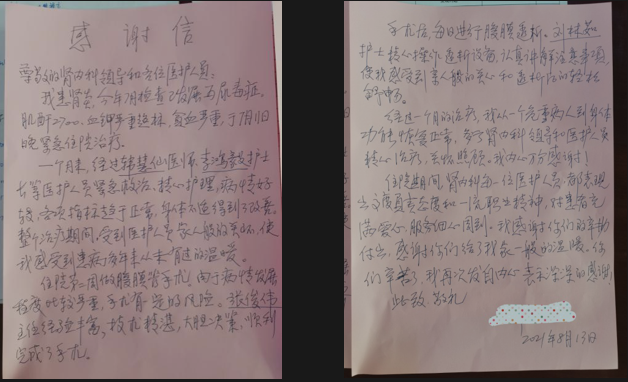 感谢信
尊敬的肾内科领导和各位医护人员:
我患肾炎,今年7月检查已发展为尿毒症,
肌酐2700,血钾严重超标,贫血严重,于7月11日
晚紧急住院治疗。
一个月来,经过韩慧仙医师、李鸿毅护士
长等医护人员紧急救治、精心护理,病情好
转,各项指标趋于正常,身体不适得到了改善。
整个治疗期间,受到医护人员家人般的关怀,使
我感受到患病多年来从未有过的温暖。
住院第二周做腹膜透手术,由于病情发展
程度比较严重,手术有一定的风险。张俊伟
主任经验丰富,技术精湛,大胆决策,顺利
完成了手术。
手术后,每日进行腹膜透析。刘林如
护士精心操作透析设备,认真讲解注意事项,
使我感受到亲人般的关心和透析后的轻松
舒畅。
经过一个月的治疗,我从一个危重病人到身体
功能恢复正常,多亏肾内科领导和医护人员
精心治疗,关怀照顾,我内心十分感谢!
住院期间,肾内科每一位医护人员,都表现
出了认真负责态度和一流职业精神,对患者充
满爱心,服务细心周到。我感谢你们的辛勤
付出,感谢你们给了我家一般的温暖,你
们辛苦了,我再次发自内心表示深深的感谢!
此致 敬礼
2021年8月13日